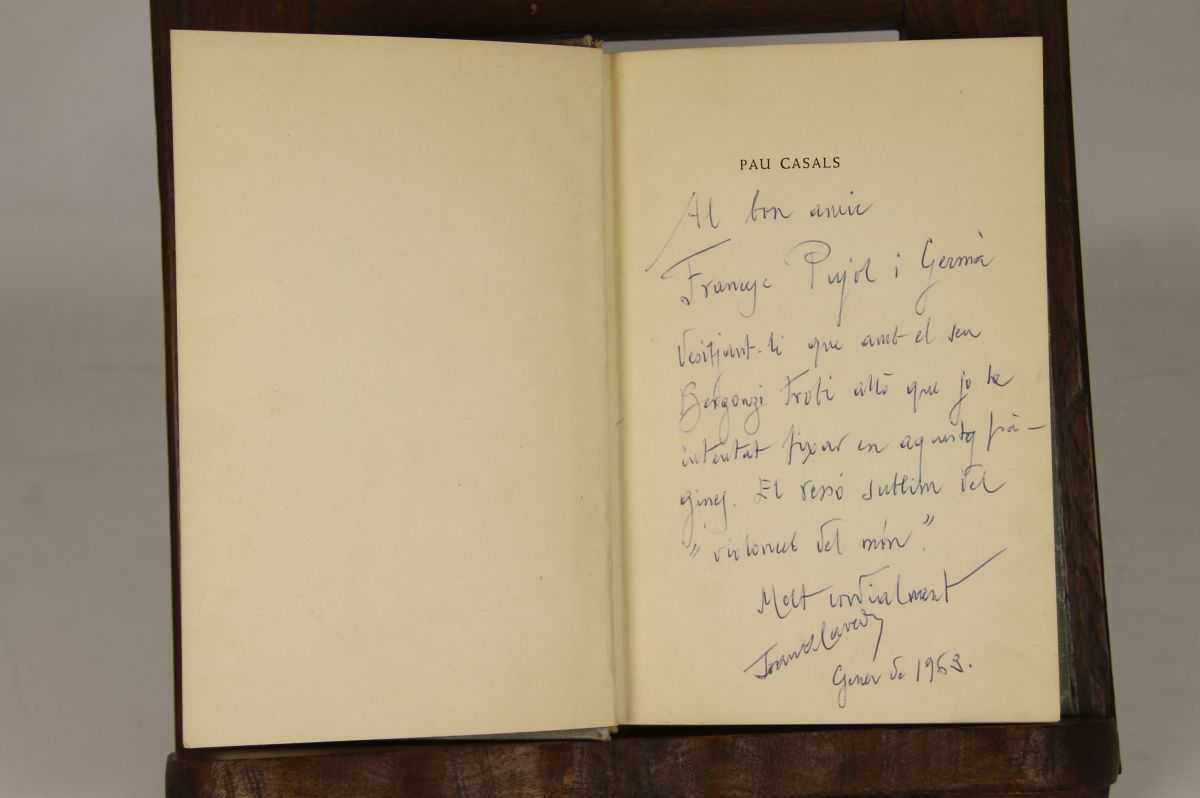 PAU CASALS
Al bon amic
Francesc Pujol i Germà
desitjant-li que amb el seu
Bergonzi trobi allò que jo he
intentat fixar en aquestes pà-
gines. El ressò sublim del
"violoncel del món".
Molt cordialment
Joan Alavedra
Gener de 1963.